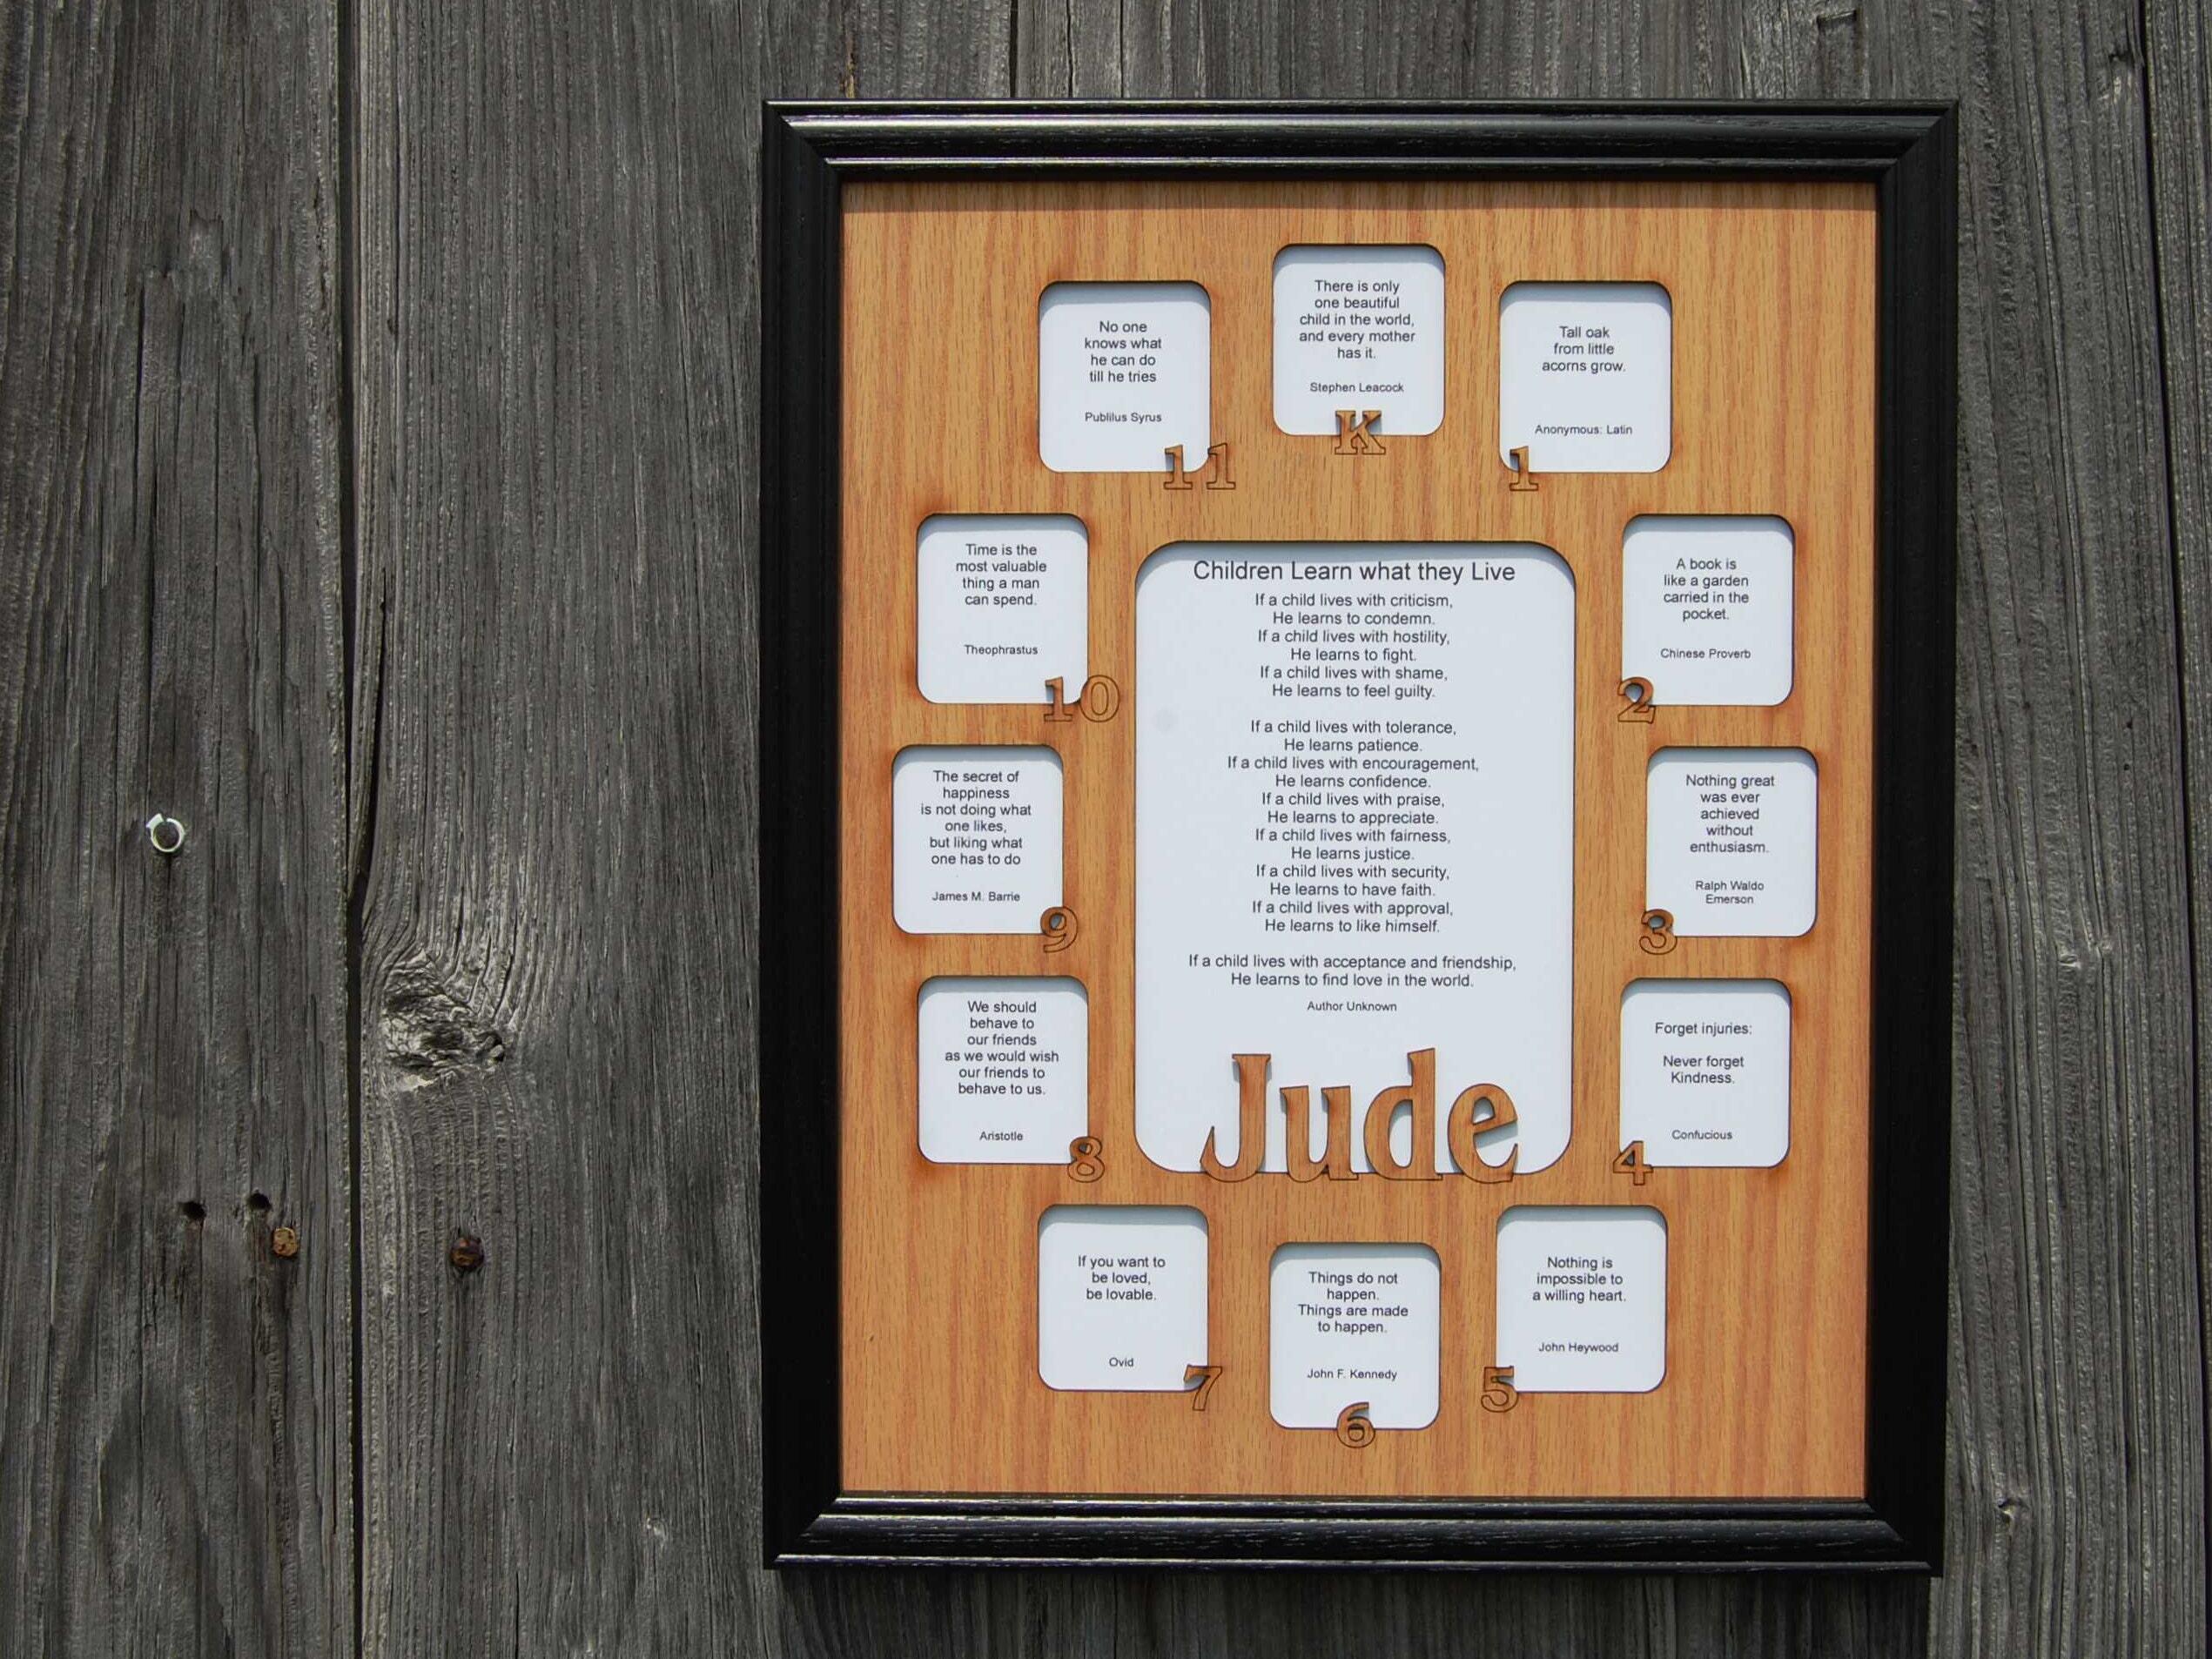 There is only
one beautiful
child in the world,
and every mother
has it.
Stephen Leacock
K
Tall oak
from little
acorns grow.
Anonymous: Latin
1
A book is
like a garden
carried in the
pocket.
Chinese Proverb
2
Nothing great
was ever
achieved
without
enthusiasm.
Ralph Waldo
Emerson
3
Forget injuries:
Never forget
Kindness.
Confucious
4
Nothing is
impossible to
a willing heart.
John Heywood
5
Things do not
happen.
Things are made
to happen.
John F. Kennedy
6
If you want to
be loved,
be lovable.
Ovid
7
We should
behave to
our friends
as we would wish
our friends to
behave to us.
Aristotle
8
The secret of
happiness
is not doing what
one likes,
but liking what
one has to do
James M. Barrie
9
Time is the
most valuable
thing a man
can spend.
Theophrastus
10
No one
knows what
he can do
till he tries
Publilus Syrus
11
Children Learn what they Live
If a child lives with criticism,
He learns to condemn.
If a child lives with hostility,
He learns to fight.
If a child lives with shame,
He learns to feel guilty.
If a child lives with tolerance,
He learns patience.
If a child lives with encouragement,
He learns confidence.
If a child lives with praise,
He learns to appreciate.
If a child lives with fairness,
He learns justice.
If a child lives with security,
He learns to have faith.
If a child lives with approval,
He learns to like himself.
If a child lives with acceptance and friendship,
He learns to find love in the world.
Author Unknown
Jude